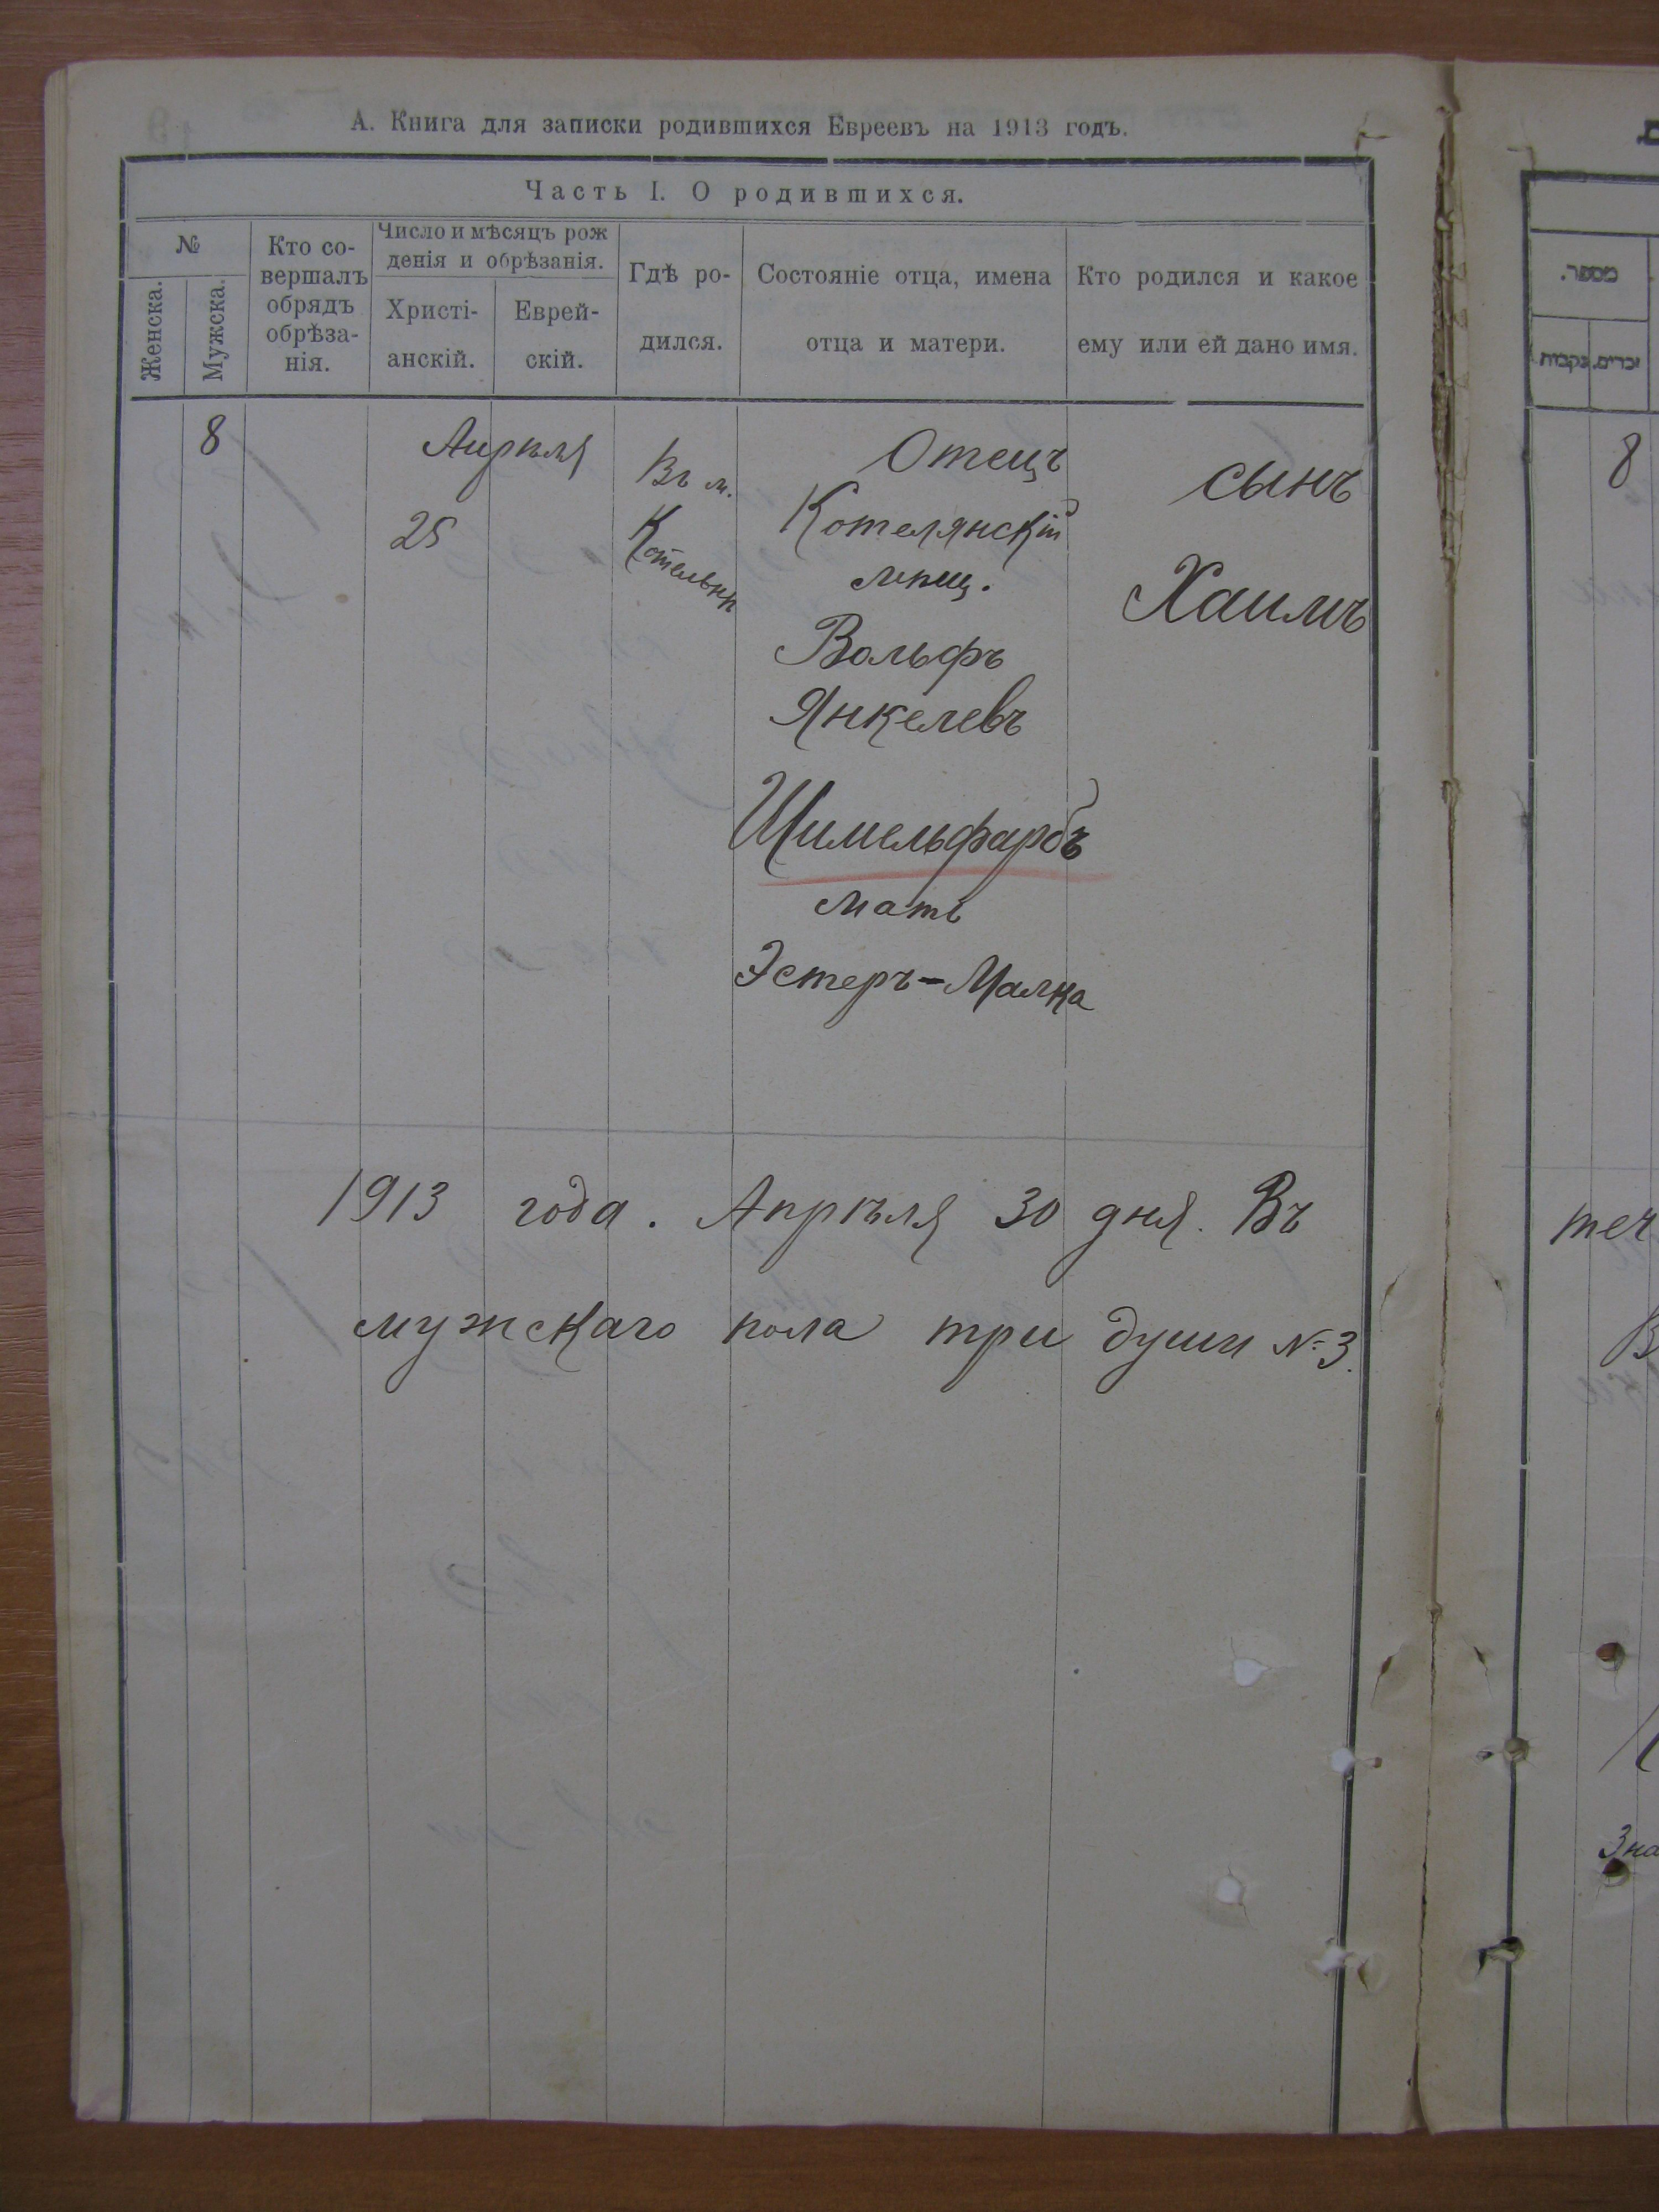 А. Книга для записки родившихся Евреевъ на 1913 годъ.
Часть I. О родившихся.
№
Женска.
Мужска.
Кто со-
вершалъ
обрядъ
обрѣза-
нія.
Число и мѣсяцъ рож
денія и обрѣзанія.
Христі-
анскій.
Еврей-
скій.
Гдѣ ро-
дился.
Состояніе отца, имена
отца и матери.
Кто родился и какое
ему или ей дано имя.
8
Апрѣля
25
Въ м.
Котельнѣ
Отецъ
Котелянскій
мѣщ.
Вольфъ
Янкелевъ
Шимельфарбъ
мать
Эстеръ-Малка
сынъ
Хаимъ
1913 года. Апрѣля 30 дня. Въ
мужскаго пола три души №3.
מספר.
זכרים.
נקבות
8
теч
В
Зна